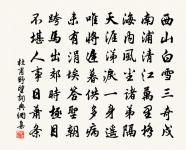 西山白雪三奇戍
南浦清江萬里橋
海內風塵諸弟隔
天涯涕淚一身遙
唯將遲暮供多病
未有涓埃答聖朝
跨馬出郊時極目
不堪人事日蕭條
杜甫野望詞典網集